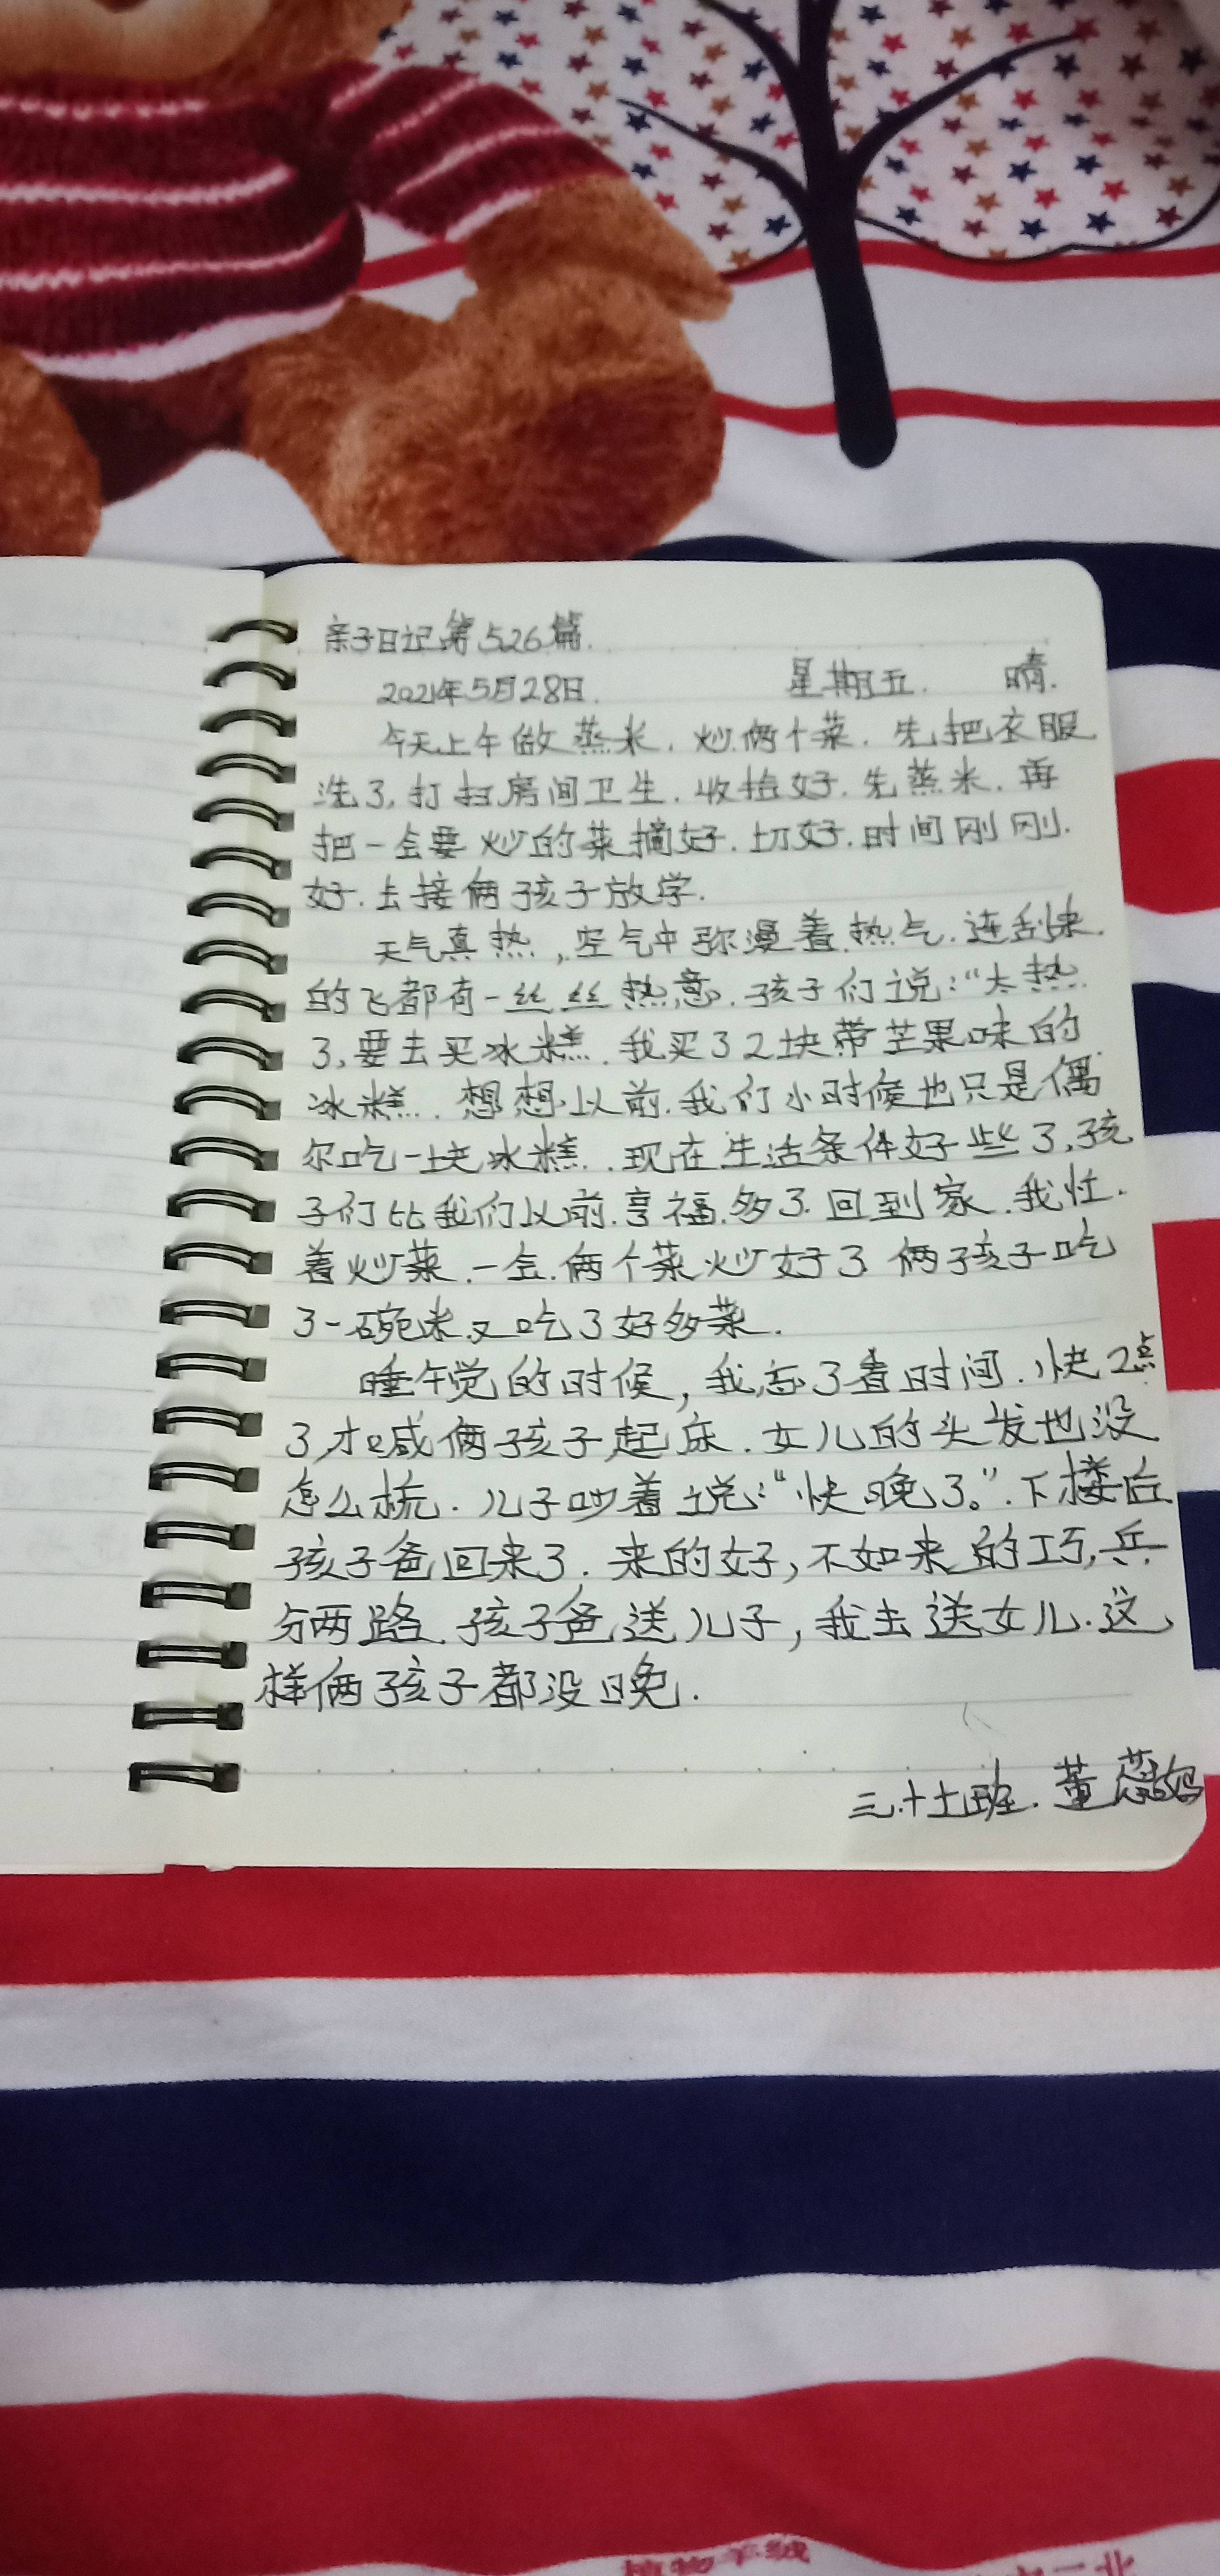 亲子日记第526篇.
2021年5月28日. 星期五. 晴.
今天上午做蒸米.炒俩个菜.先把衣服
洗了,打扫房间卫生.收拾好.先蒸米.再
把一会要炒的菜摘好.切好.时间刚刚
好.去接俩孩子放学.
天气真热,空气中弥漫着热气.连刮来
的飞都有一丝丝热意.孩子们说:“太热
了,要去买冰糕.我买了2块带芒果味的
冰糕.想想以前.我们小时候也只是偶
尔吃一块冰糕.现在生活条件好些了,孩
子们比我们以前享福多了.回到家.我忙
着炒菜.一会.俩个菜炒好了 俩孩子吃
了一碗米又吃了好多菜.
睡午觉的时候,我忘了看时间.快2点
了,才喊俩孩子起床.女儿的头发也没
怎么梳.儿子吵着说:“快晚了。”下楼后
孩子爸回来了.来的好,不如来的巧,兵
分两路.孩子爸送儿子,我去送女儿.这
样俩孩子都没晚.
董蕊妈